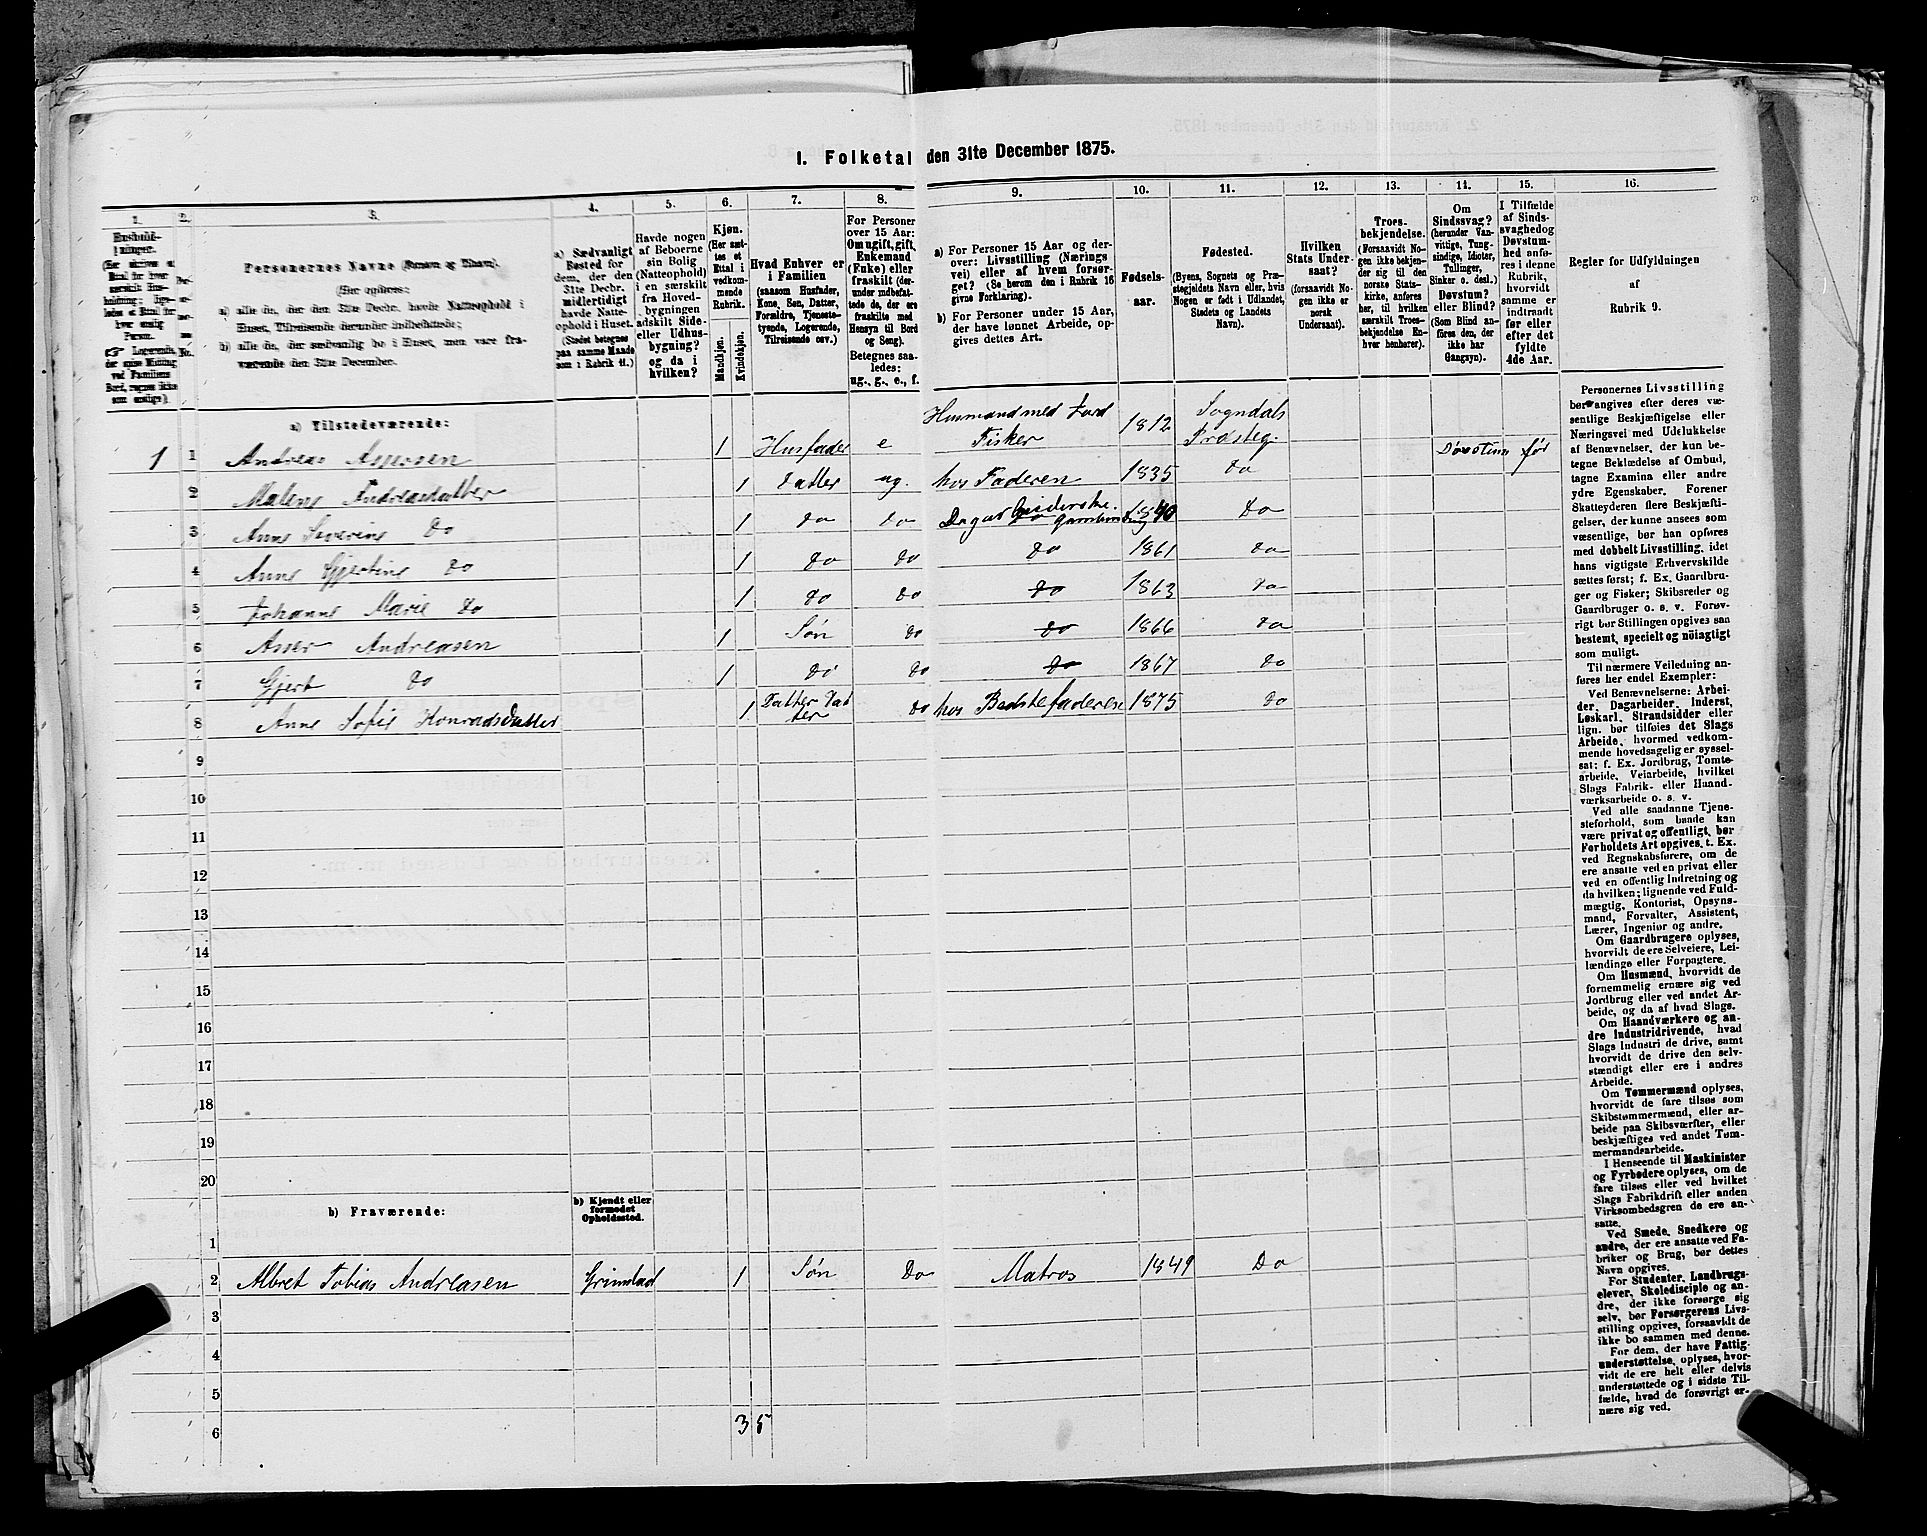 1. Folketal den 31te December 1875.
1. 2. 3. 4. 5. 6. 7. 8. 9. 10. 11. 12. 13. 14. 15. 16.
Personernes Navne (Fornavn og Tilnavn).
(Her opføres:
a) alle de, der den 31te Decbr. havde Natteophold i
Huset, Tilreisende derunder indbefattede;
b) alle de, der sædvanlig bo i Huset, men vare fra-
værende den 31te December.
a) Sædvanligt
Bosted for
dem, der den
31te Decbr.
midlertidigt
havde Natte-
ophold i Huset.
(Stedet betegnes
paa samme Maade
som i Rubrik 11.)
Havde nogen
af Beboerne
sin Bolig
(Natteophold)
i en særskilt
fra Hoved-
bygningen
adskilt Side-
eller Udhus-
bygning?
og da i
hvilken?
Kjøn.
(Her sæt-
tes et
Ettal i
vedkom-
mende
Rubrik.
Mandkjøn.
Kvindekjøn.
Hvad Enhver er
i Familien
(saasom Husfader,
Kone, Søn, Datter,
Forældre, Tjeneste-
tyende, Logerende,
Tilreisende osv.)
For Personer
over 15 Aar:
Om ugift, gift,
Enkemand
(Enke) eller
fraskilt (der-
under indbefat-
tede de, der ere
fraskilte med
Hensyn til Bord
og Seng).
Betegnes saa-
ledes:
ug., g., e., f.
a) For Personer 15 Aar og der-
over: Livsstilling (Nærings
vei) eller af hvem forsør-
get? (Se herom den i Rubrik 16
givne Forklaring).
b) For Personer under 15 Aar,
der have lønnet Arbeide, op-
gives dettes Art.
Fødsels-
aar.
Fødested.
(Byens, Sognets og Præ-
stegjeldets Navn eller, hvis
Nogen er født i Udlandet,
Stedets og Landets
Navn).
Hvilken
Stats Under-
saat?
(forsaavidt No-
gen ikke er
norsk
Undersaat).
Troes-
bekjendelse.
(Forsaavidt No-
gen ikke bekjen-
der sig til den
norske Stats-
kirke, anføres
her, til hvilken
særskilt Troes-
bekjendelse En-
hver henhører).
Om
Sindssvag?
(herunder Van-
vittige, Tung-
sindige, Idioter,
Tullinger,
Sinker o. desl.)
Døvstum?
eller Blind?
(Som Blind an-
føres den, der
ikke har
Gangsyn).
I Tilfælde
af Sinds-
svaghed og
Døvstum-
hed anfø-
res i denne
Rubrik,
hvorvidt
samme er
indtraadt
før eller
efter det
fyldte
4de Aar.
Regler for Udfyldningen
af
Rubrik 9.
a) Tilstedeværende:
1 1 Andreas Assersen 1 Husfader e Husmand med Jord Fisker 1812 Sogndals Præsteg.
2 Malene Andreasdatter 1 Datter ug. hos Faderen 1835 do Døvstum før
3 Anne Severine Do 1 do do 1840 Do
4 Anne Gjertine do 1 do do do 1861 do
5 Johanne Marie do 1 do do do 1863 do
6 Asser Andreasen 1 Søn do do 1866 do
7 Gjert do 1 do do do 1867 do
8 Anne Sofie Konradsdatter 1 Datter Datter do hos Bedstefaderen 1875 do
9
10
11
12
13
14
15
16
17
18
19
20
b) Fraværende:
b) Kjendt eller
formodet
Opholdssted.
1
2 Albret Tobias Andreasen Grimstad 1 Søn Do Matros 1849 Do
3
4
5
6
3 5
Personernes Livsstilling
bør angives efter deres væ-
sentlige Beskjæftigelse eller
Næringsvei med Udelukkelse
af Benævnelser, der kun be-
tegne Beklædelse af Ombud,
tagne Examina eller andre
ydre Egenskaber. Forener
Skatteyderen flere Beskjæfti-
gelser, der kunne ansees som
væsentlige, bør han opføres
med dobbelt Livsstilling, idet
hans vigtigste Erhvervskilde
sættes først; f. Ex. Gaardbru-
ger og Fisker; Skibsreder og
Gaardbruger o. s. v. Forøv-
rigt bør Stillingen opgives saa
bestemt, specielt og nöiagtigt
som muligt.
Til nærmere Veiledning an-
føres her endel Exempler:
Ved Benævnelserne: Arbei-
der, Dagarbeider, Inderst,
Løskarl, Strandsidder eller
lign. bør tilføies det Slags
Arbeide, hvormed vedkom-
mende hovedsagelig er syssel-
sat; f. Ex. Jordbrug, Tomte-
arbeide, Veiarbeide, hvilket
Slags Fabrik- eller Haand-
værksarbeide o. s. v.
Ved alle saadanne Tjene-
steforhold, som baade kan
være privat og offentligt, bør
Forholdets Art opgives, t. Ex.
ved Regnskabsførere, om de
ere ansatte ved en privat eller
ved en offentlig Indretning og
da hvilken; lignende ved Fuld-
mægtig, Kontorist, Opsyns-
mand, Forvalter, Assistent,
Lærer, Ingeniør og andre.
Om Gaardbrugere oplyses,
hvorvidt de ere Selveiere, Lei-
lændinge eller Forpagtere.
Om Husmænd, hvorvidt de
fornemmelig ernære sig ved
Jordbrug eller ved andet Ar-
beide, og da af hvad Slags.
Om Haandværkere og an-
dre Industridrivende, hvad
Slags Industri de drive, samt
hvorvidt de drive den selv-
stændigt eller ere i andres
Arbeide.
Om Tømmermænd oplyses,
hvorvidt de fare tilsøs som
Skibstømmermænd, eller ar-
beide paa Skibsværfter, eller
beskjæftiges ved andet Tøm-
mermandsarbeide.
I Henseende til Maskinister
og Fyrbødere oplyses, om de
fare tilsøs eller ved hvilket
Slags Fabrikdrift eller anden
Virksomhedsgren de ere an-
satte.
Ved Smede, Snedkere og
andre, der ere ansatte ved Fa-
briker og Brug, bør dettes
Navn opgives.
For Studenter, Landbrugs-
elever, Skoledisciple og an-
dre, der ikke forsørge sig
selv, bør Forsørgerens Livs-
stilling opgives, forsaavidt de
ikke bo sammen med denne.
For dem, der have Fattig-
understøttelse, oplyses, hvor-
vidt de ere helt eller delvis
understøttede og i sidste Til-
fælde, hvad de forøvrigt er-
nære sig ved.